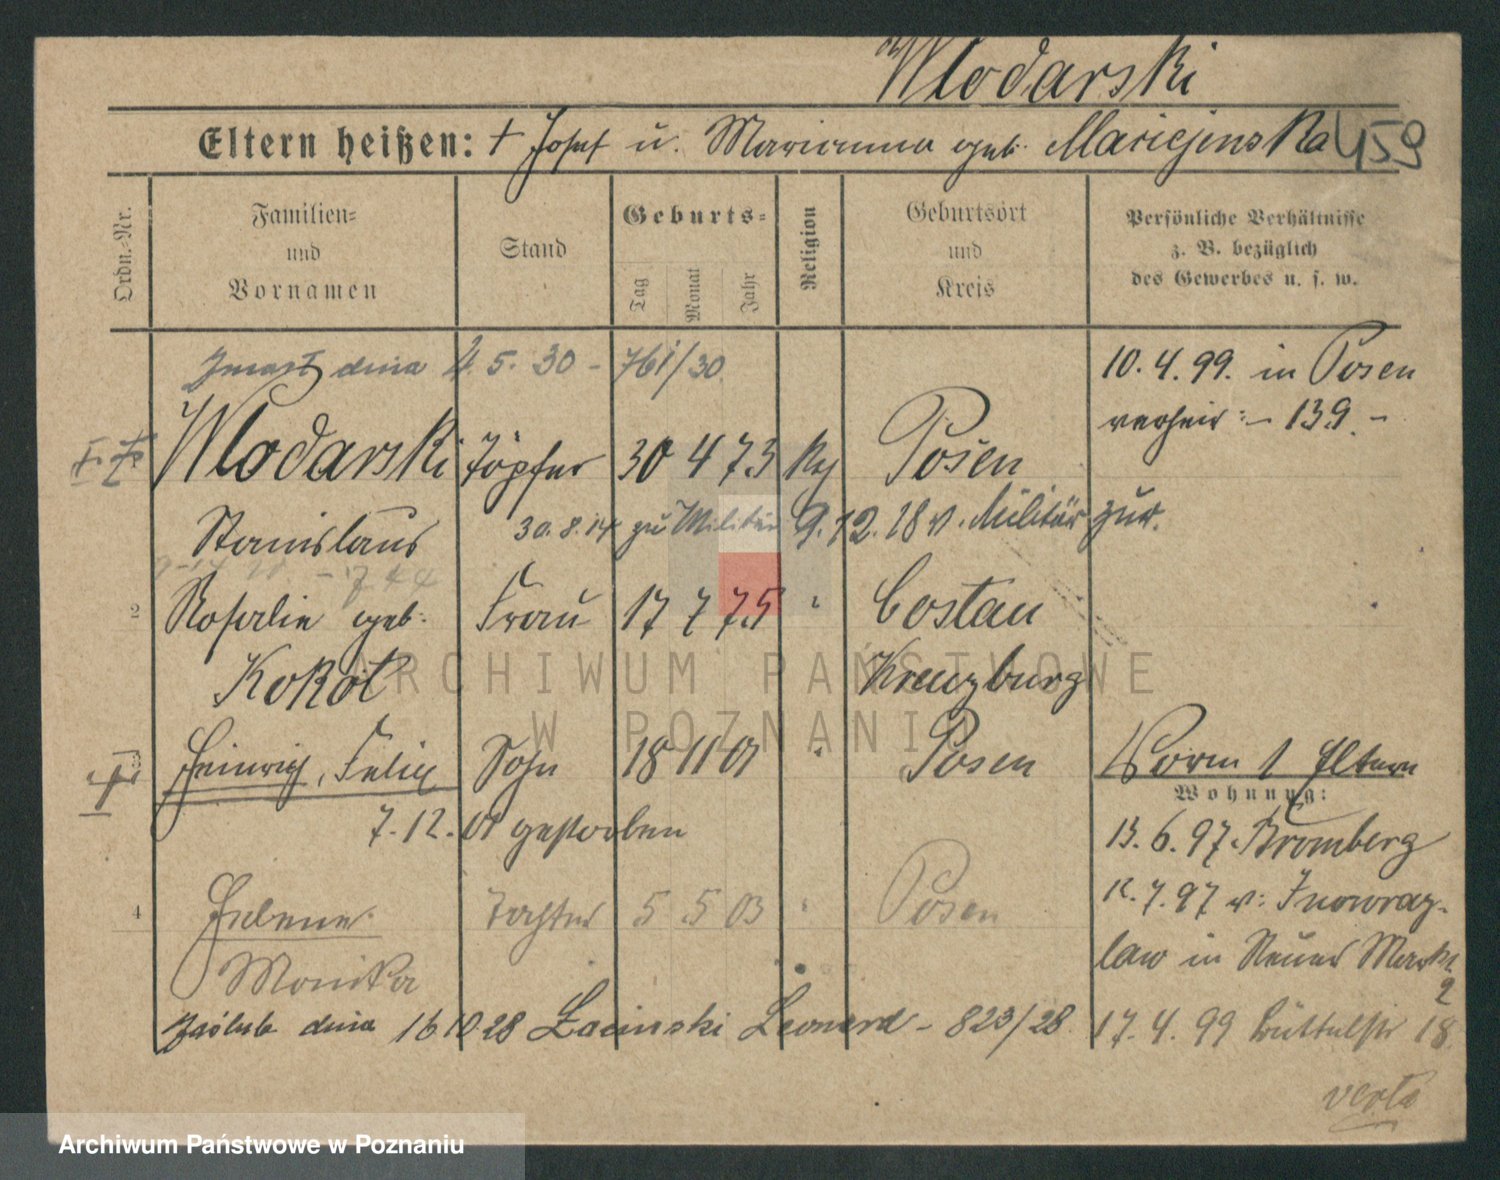 Wlodarski
Eltern heißen: + Josef u. Marianna geb. Maciejenska 459
Ordn.-Nr.
Familien-
und
Vornamen
Stand
Geburts-
Tag
Monat
Jahr
Religion
Geburtsort
und
Kreis
Persönliche Verhältnisse
z. B. bezüglich
des Gewerbes u. s. w.
Zmarł dnia 2.5.30 - 761/30
10.4.99. in Posen
verheir: - 139. -
Wlodarski Töpfer 30 4 73 kg Posen
Stanislaus 30.8.14 zu Militär 9.12.18 v. Militär zur.
2 Rosalie geb. Frau 17 7 75 " Costau
Kokot Kreuzburg
3 Heinrich, Felix Sohn 18 11 01 " Posen
7.12.01 gestorben
Vorm 1 Eltern
Wohnung:
13.6.97. Bromberg
12.7.97 v: Inowraz-
law in Neuer Markt
2
4 Helene Tochter 5 5 03 " Posen
Monika
Zaślub. dnia 16 10 28 Łacinski Leonard - 823/28
17.4.99 18.
verte
ARCHIWUM PAŃSTWOWE
W POZNANIU
Archiwum Państwowe w Poznaniu